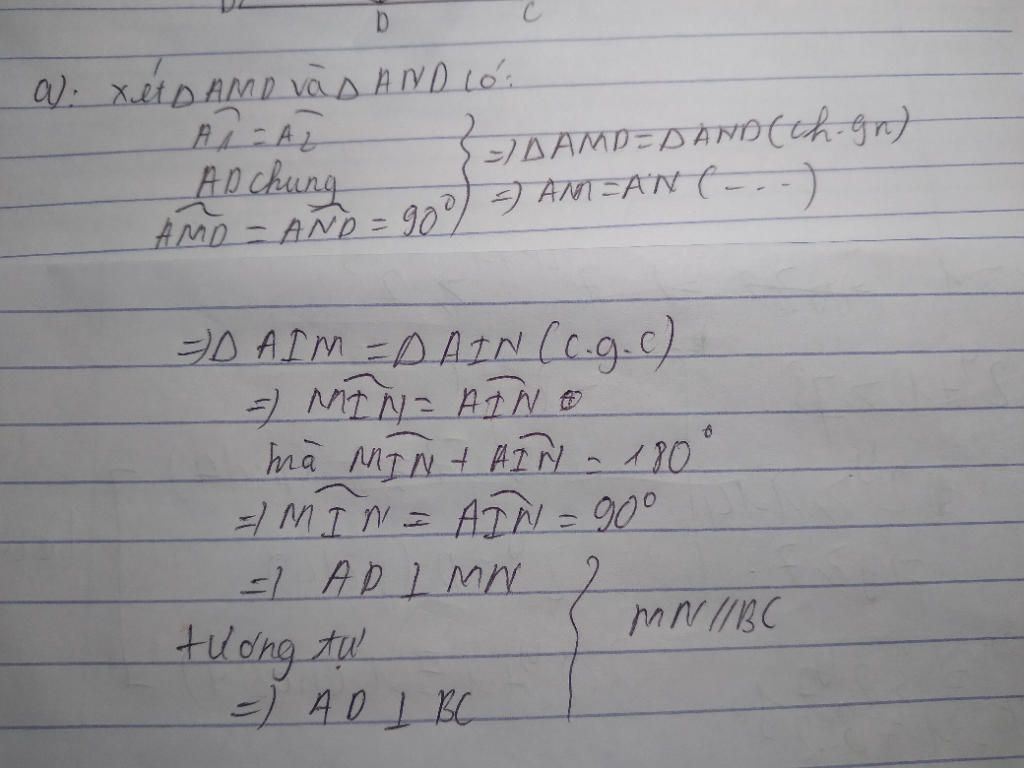 D C
a): xét Δ AMD và Δ AND có:
A1 = A2
AD chung
AMD = AND = 90°
=) Δ AMD = Δ AND (ch.gn)
=) AM = AN (----)
=) Δ AIM = Δ AIN (c.g.c)
=) MIN = AIN
mà MIN + AIN = 180°
=) MIN = AIN = 90°
=) AD ⊥ MN
tương tự
=) AD ⊥ BC
MN // BC